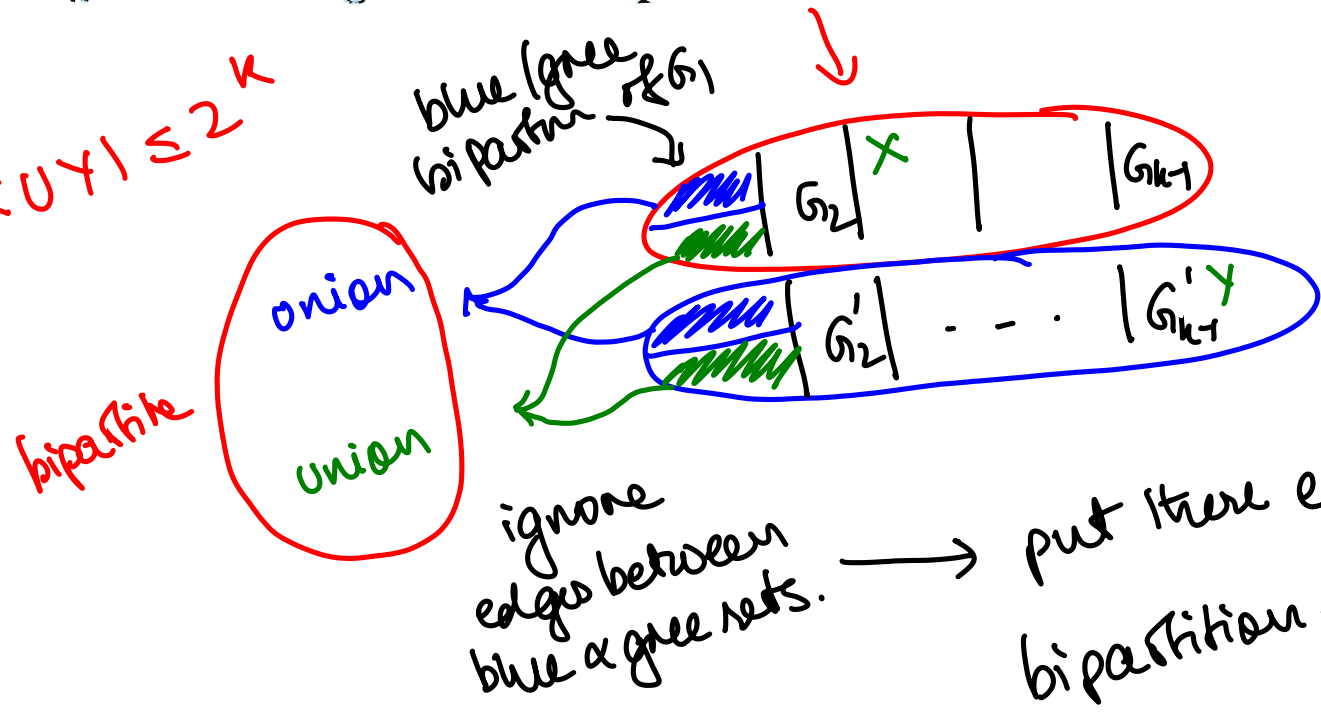 blue/gree
bipartn of G1
UY| ≤ 2^k
G2
X
Gk-1
G2'
- - .
G'k-1
Y
onion
union
bipartite
ignore
edges between
blue & gree sets.
put there e
bipartition